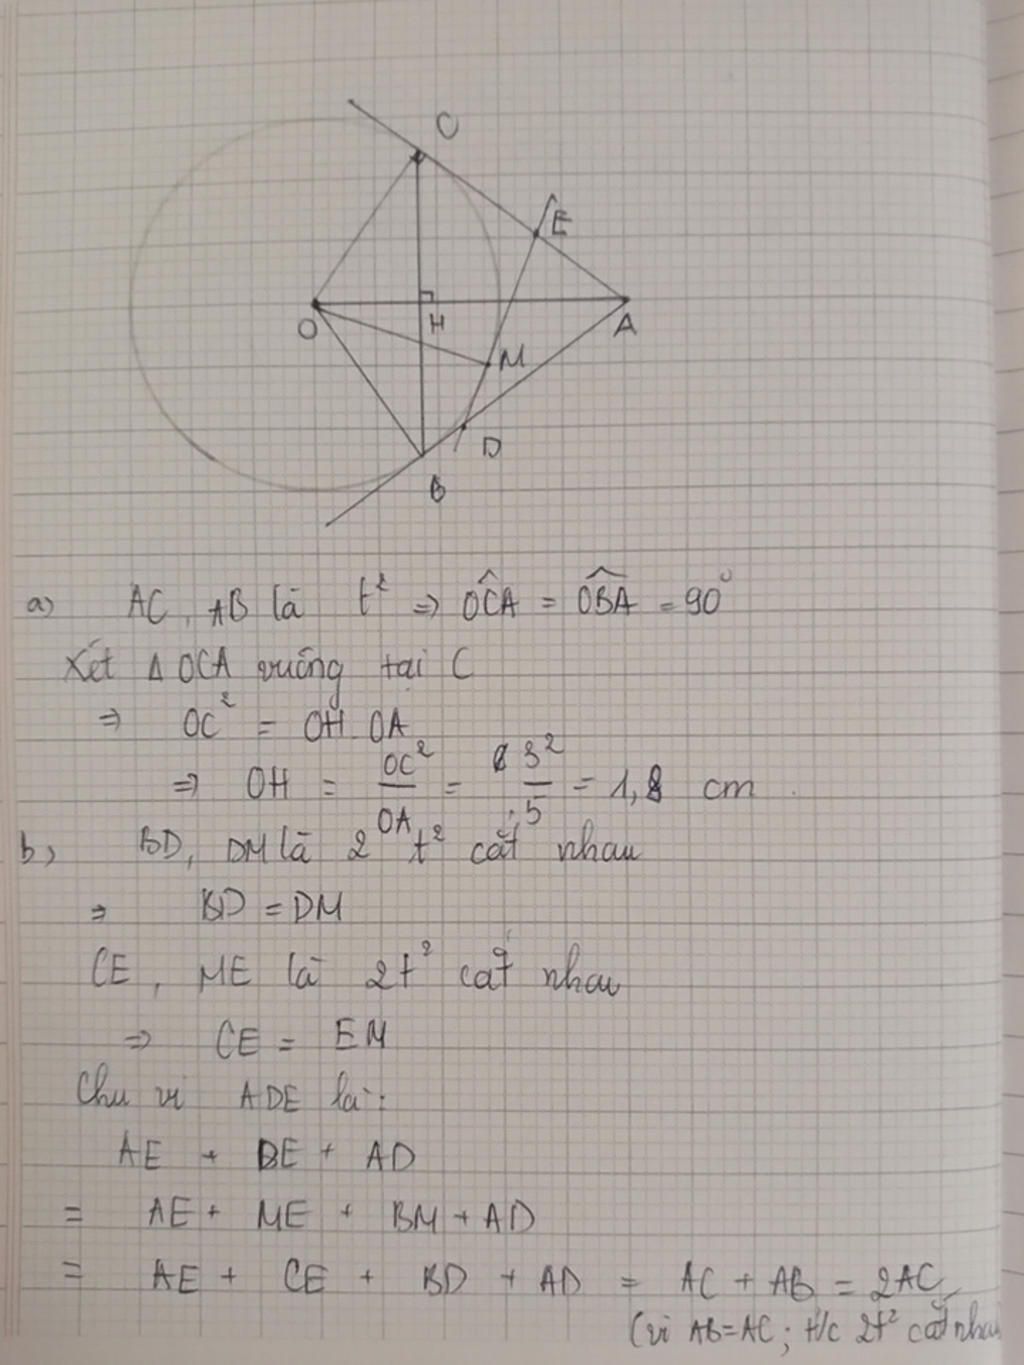 C
E
O
H
A
M
D
B
a) AC, AB là t² ⇒ OĈA = OBA = 90°
Xét Δ OCA vuông tại C
⇒ OC² = OH.OA
⇒ OH = OC²/OA = 3²/5 = 1,8 cm
b) BD, DM là 2 t² cắt nhau
⇒ BD = DM
CE, ME là 2t² cắt nhau
⇒ CE = EM
Chu vi ADE là:
AE + DE + AD
= AE + ME + BM + AD
= AE + CE + BD + AD = AC + AB = 2AC
(vì AB=AC; t/c 2t² cắt nhau